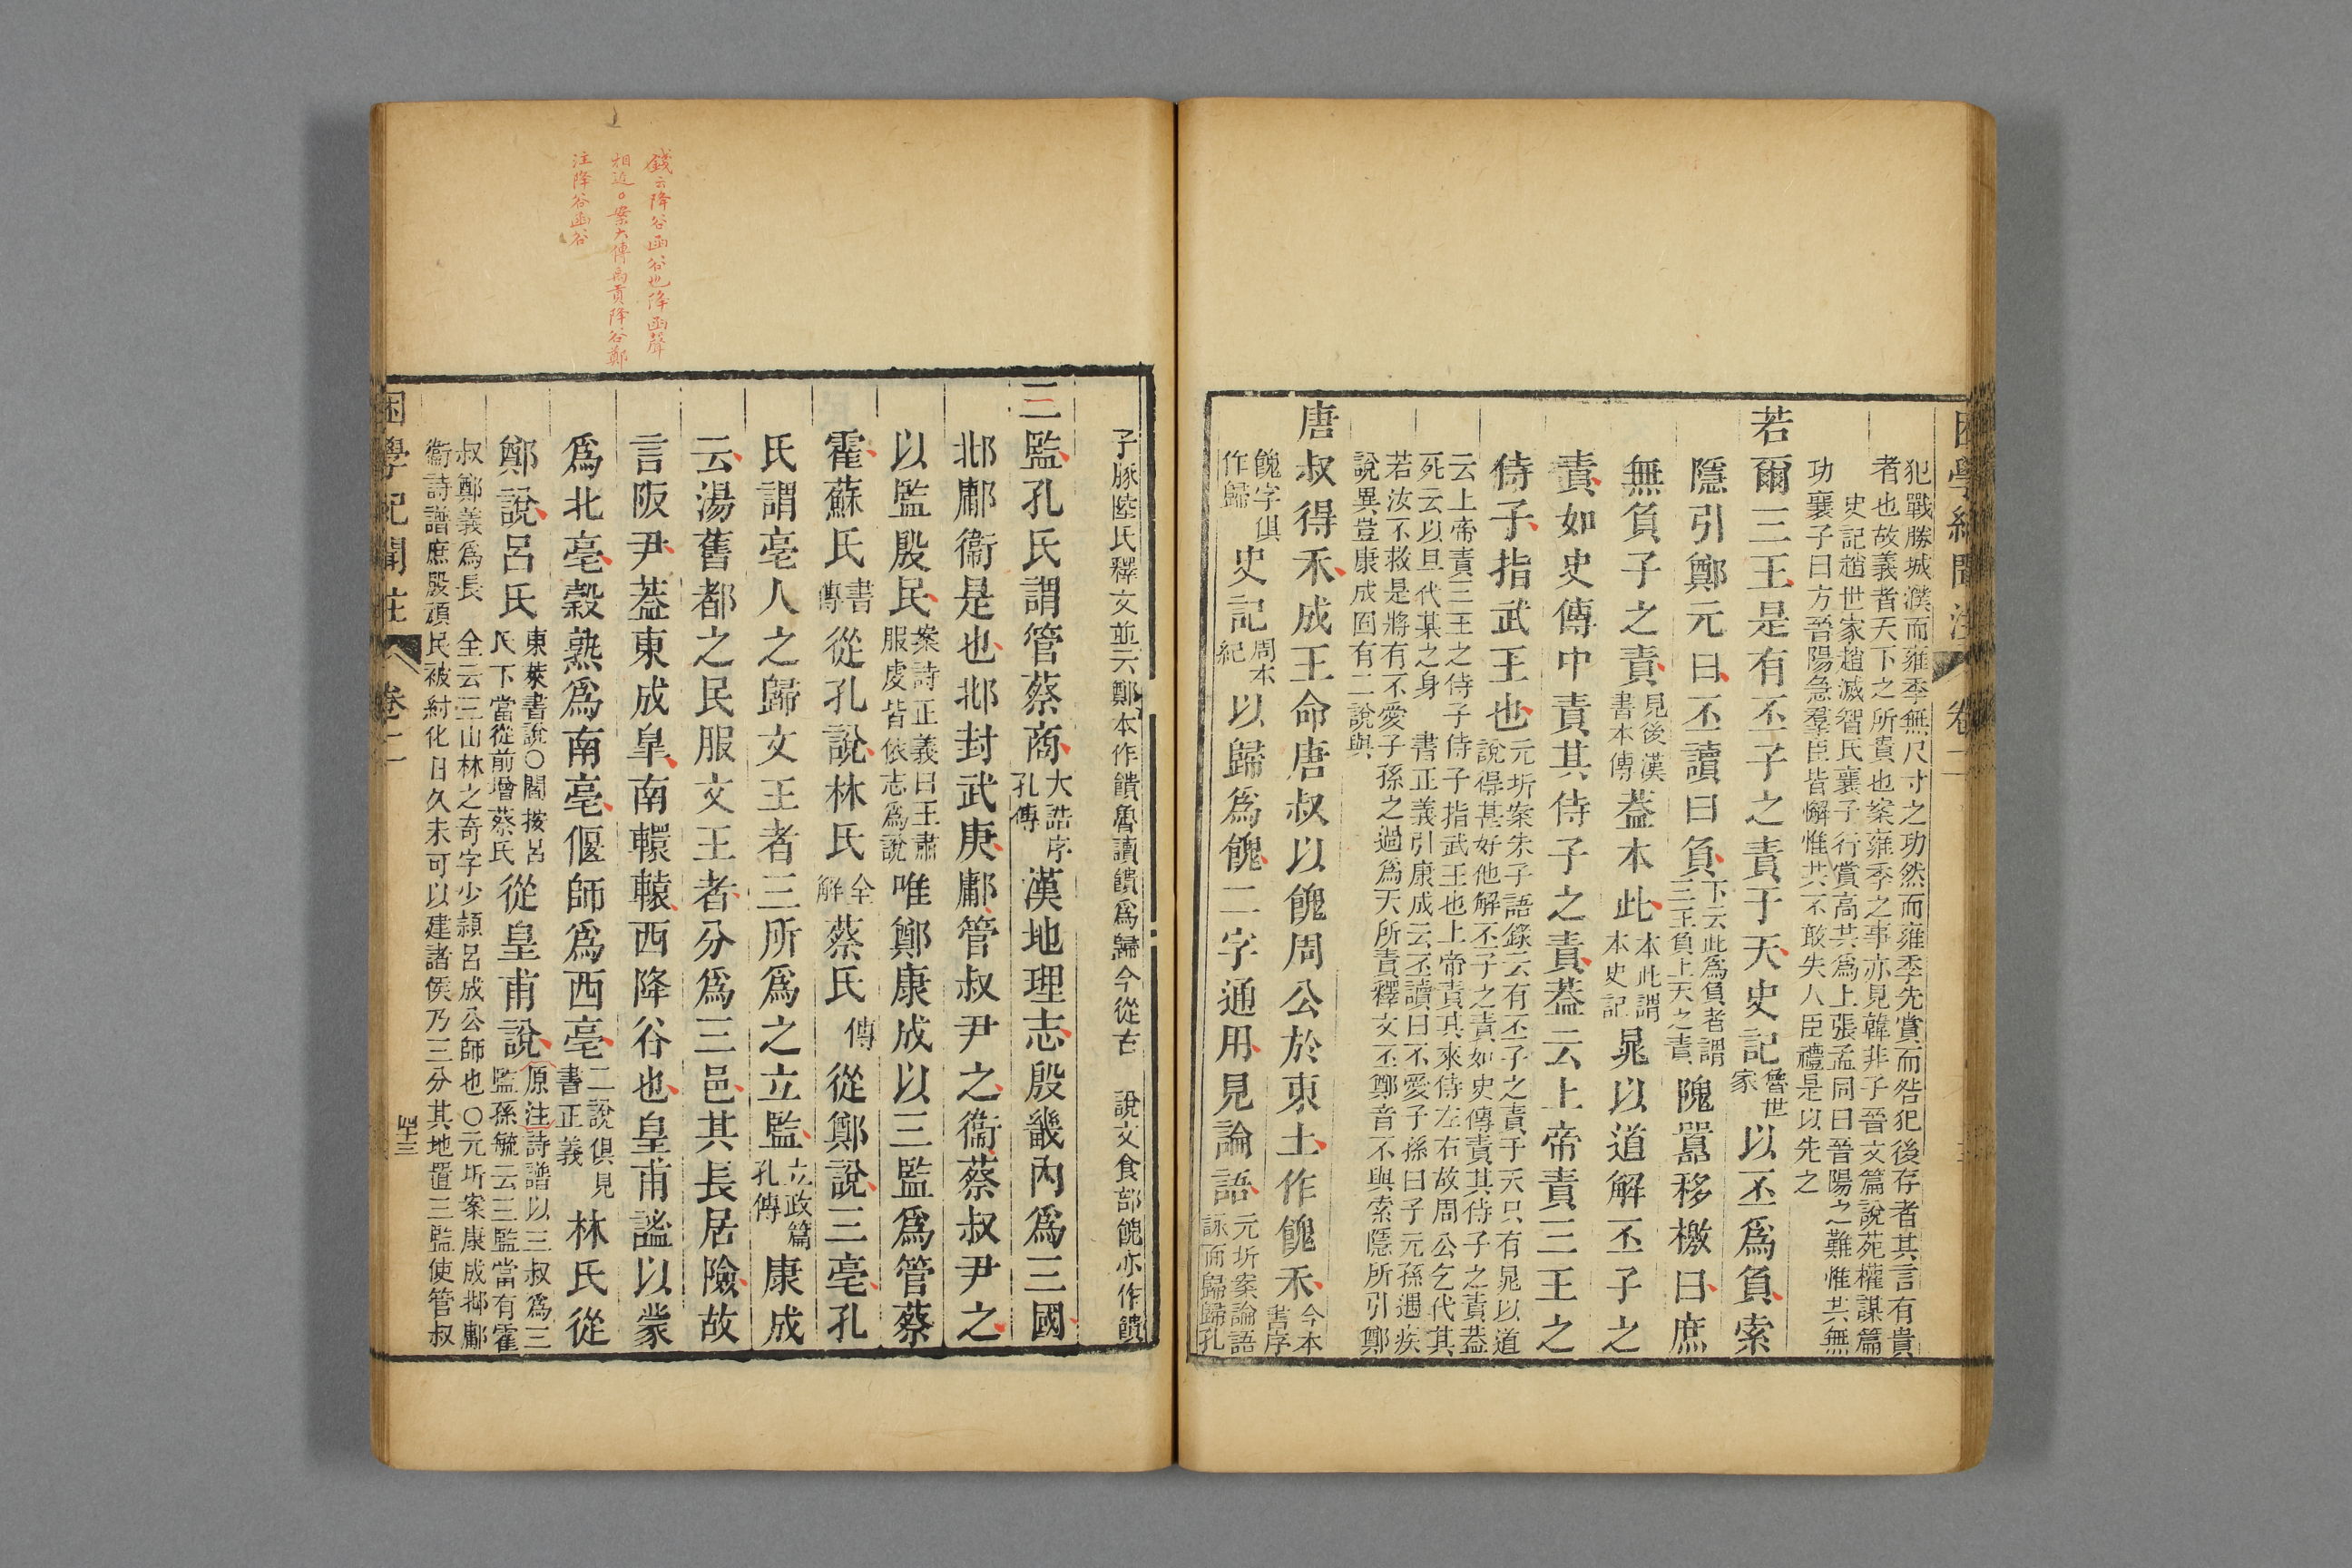 犯戰勝城濮而雍季無尺寸之功然而雍季先賞而咎犯後存者其言有貴
者也故義者天下之所貴也案雍季之事亦見韓非子晉文篇說苑權謀篇
史記趙世家趙滅智氏襄子行賞高共爲上張孟同曰晉陽之難惟共無
功襄子曰方晉陽急羣臣皆懈惟共不敢失人臣禮是以先之
若爾三王是有丕子之責于天史記魯世家以丕爲負索
隱引鄭元曰丕讀曰負下云此爲負者謂三王負上天之責隗囂移檄曰庶
無負子之責見後漢書本傳葢本此本此謂本史記晁以道解丕子之
責如史傳中責其侍子之責葢云上帝責三王之
侍子指武王也元圻案朱子語錄云有丕子之責于天只有晁以道說得甚好他解丕子之責如史傳責其侍子之責葢
云上帝責三王之侍子侍子指武王也上帝責其來侍左右故周公乞代其
死云以旦代某之身 書正義引康成云丕讀曰不愛子孫曰子元孫遇疾
若汝不救是將有不愛子孫之過爲天所責釋文丕鄭音不與索隱所引鄭
說異豈康成固有二說與
唐叔得禾成王命唐叔以餽周公於東土作餽禾今本書序
餽字俱作歸史記周本紀以歸爲餽二字通用見論語元圻案論語詠而歸歸孔
子豚陸氏釋文並云鄭本作饋魯讀饋爲歸今從古 說文食部餽亦作饋
三監孔氏謂管蔡商大誥序孔傳漢地理志殷畿內爲三國
邶鄘衞是也邶封武庚鄘管叔尹之衞蔡叔尹之
以監殷民案詩正義曰王肅服虔皆依志爲說唯鄭康成以三監爲管蔡
霍蘇氏書傳從孔說林氏全解蔡氏傳從鄭說三亳孔
氏謂亳人之歸文王者三所爲之立監立政篇孔傳康成
云湯舊都之民服文王者分爲三邑其長居險故
言阪尹葢東成皐南轘轅西降谷也皇甫謐以蒙
爲北亳穀熟爲南亳偃師爲西亳二說俱見書正義林氏從
鄭說呂氏東萊書說○閻按呂氏下當從前增蔡氏從皇甫說原注詩譜以三叔爲三監孫毓云三監當有霍
叔鄭義爲長 全云三山林之奇字少穎呂成公師也○元圻案康成邶鄘
衞詩譜庶殷頑民被紂化日久未可以建諸侯乃三分其地置三監使管叔
困學紀聞注 卷二
四三
錢云降谷函谷也降函聲
相近○案大傳禹貢降谷鄭
注降谷函谷